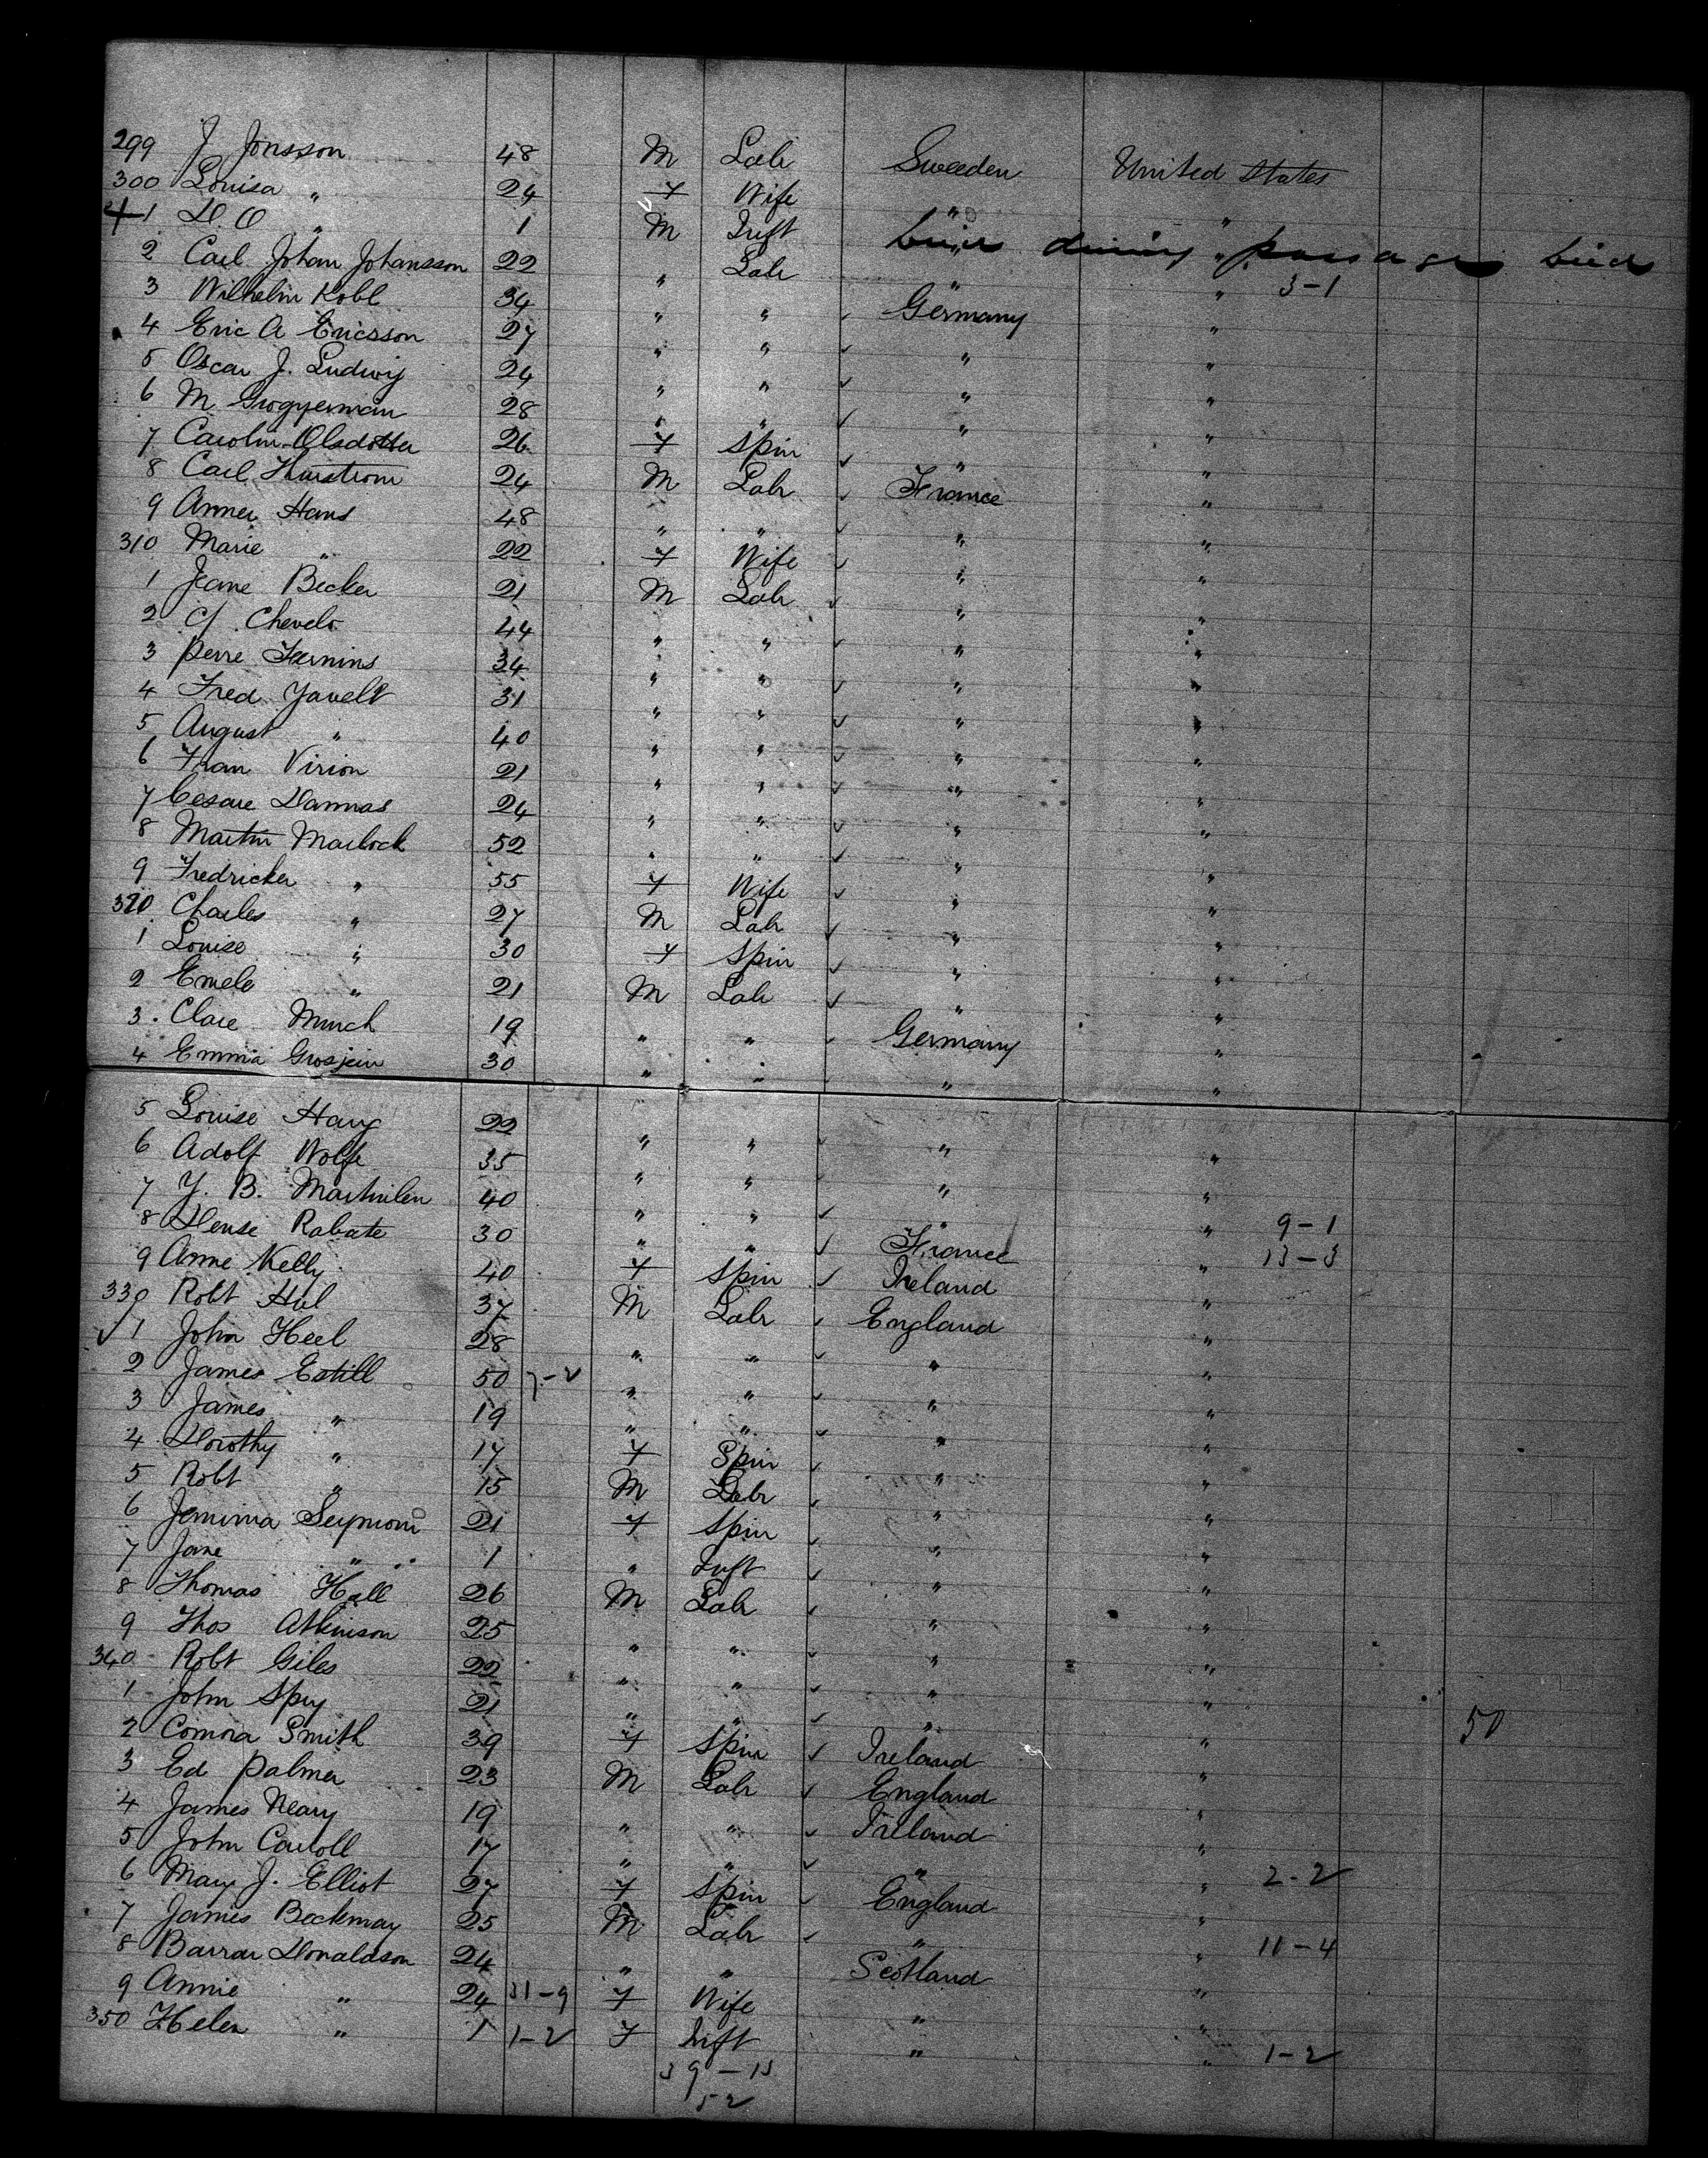 299 J Jonsson 48 M Labr Sweeden United States
300 Louisa " 24 F Wife " "
1 D. O " 1 M Inft " "
2 Carl Johan Johansson 22 " Labr " " 3-1
3 Wilhelm Kobl 34 " " Germany "
4 Eric A Ericsson 27 " " " "
5 Oscar J. Ludwig 24 " " " "
6 M 28 " " " "
7 Carolin Olsdotter 26 F Spin " "
8 Carl 24 M Labr France "
9 Anner Hans 48 " " " "
310 Marie " 22 F Wife " "
1 Jeane Becker 21 M Labr " "
2 Chevelo 44 " " " "
3 Perre 34 " " " "
4 Fred Yavelt 31 " " " "
5 August " 40 " " " "
6 Fran Virion 21 " " " "
7 Cesare Dannas 24 " " " "
8 Martin Marlock 52 " " " "
9 Fredricker " 55 F Wife " "
320 Charles " 27 M Labr " "
1 Louise " 30 F Spin " "
2 Emele " 21 M Labr " "
3 Clare Munch 19 " " Germany "
4 Emma Grosjein 30 " " " "
5 Louise Haug 22 " " " "
6 Adolf Wolfe 35 " " " "
7 Y. B. 40 " " " " 9-1
8 Dense Rabate 30 " " France " 13-3
9 Anne Kelly 40 F Spin Ireland "
330 Robt Hul 37 M Labr England "
1 John Heel 28 " " " "
2 James Estill 50 7-2 " " " "
3 James " 19 " " " "
4 Dorothy " 17 F Spin " "
5 Robt " 15 M Labr " "
6 Jemima Seymour 21 F Spin " "
7 Jane " 1 " Inft " "
8 Thomas Hall 26 M Labr " "
9 Thos Atkinson 25 " " " "
340 Robt Giles 22 " " " "
1 John Spry 21 " " " " 50
2 Connra Smith 39 F Spin Ireland "
3 Ed Palmer 23 M Labr England "
4 James Neary 19 " " Ireland "
5 John Carroll 17 " " " " 2-2
6 Mary J. Elliot 27 F Spin England "
7 James Beckmay 25 M Labr " " 11-4
8 Barrar Donaldson 24 " " Scotland "
9 Annie " 24 31-9 F Wife " "
350 Helen " 1 1-2 F Inft " " 1-2
39-13
52